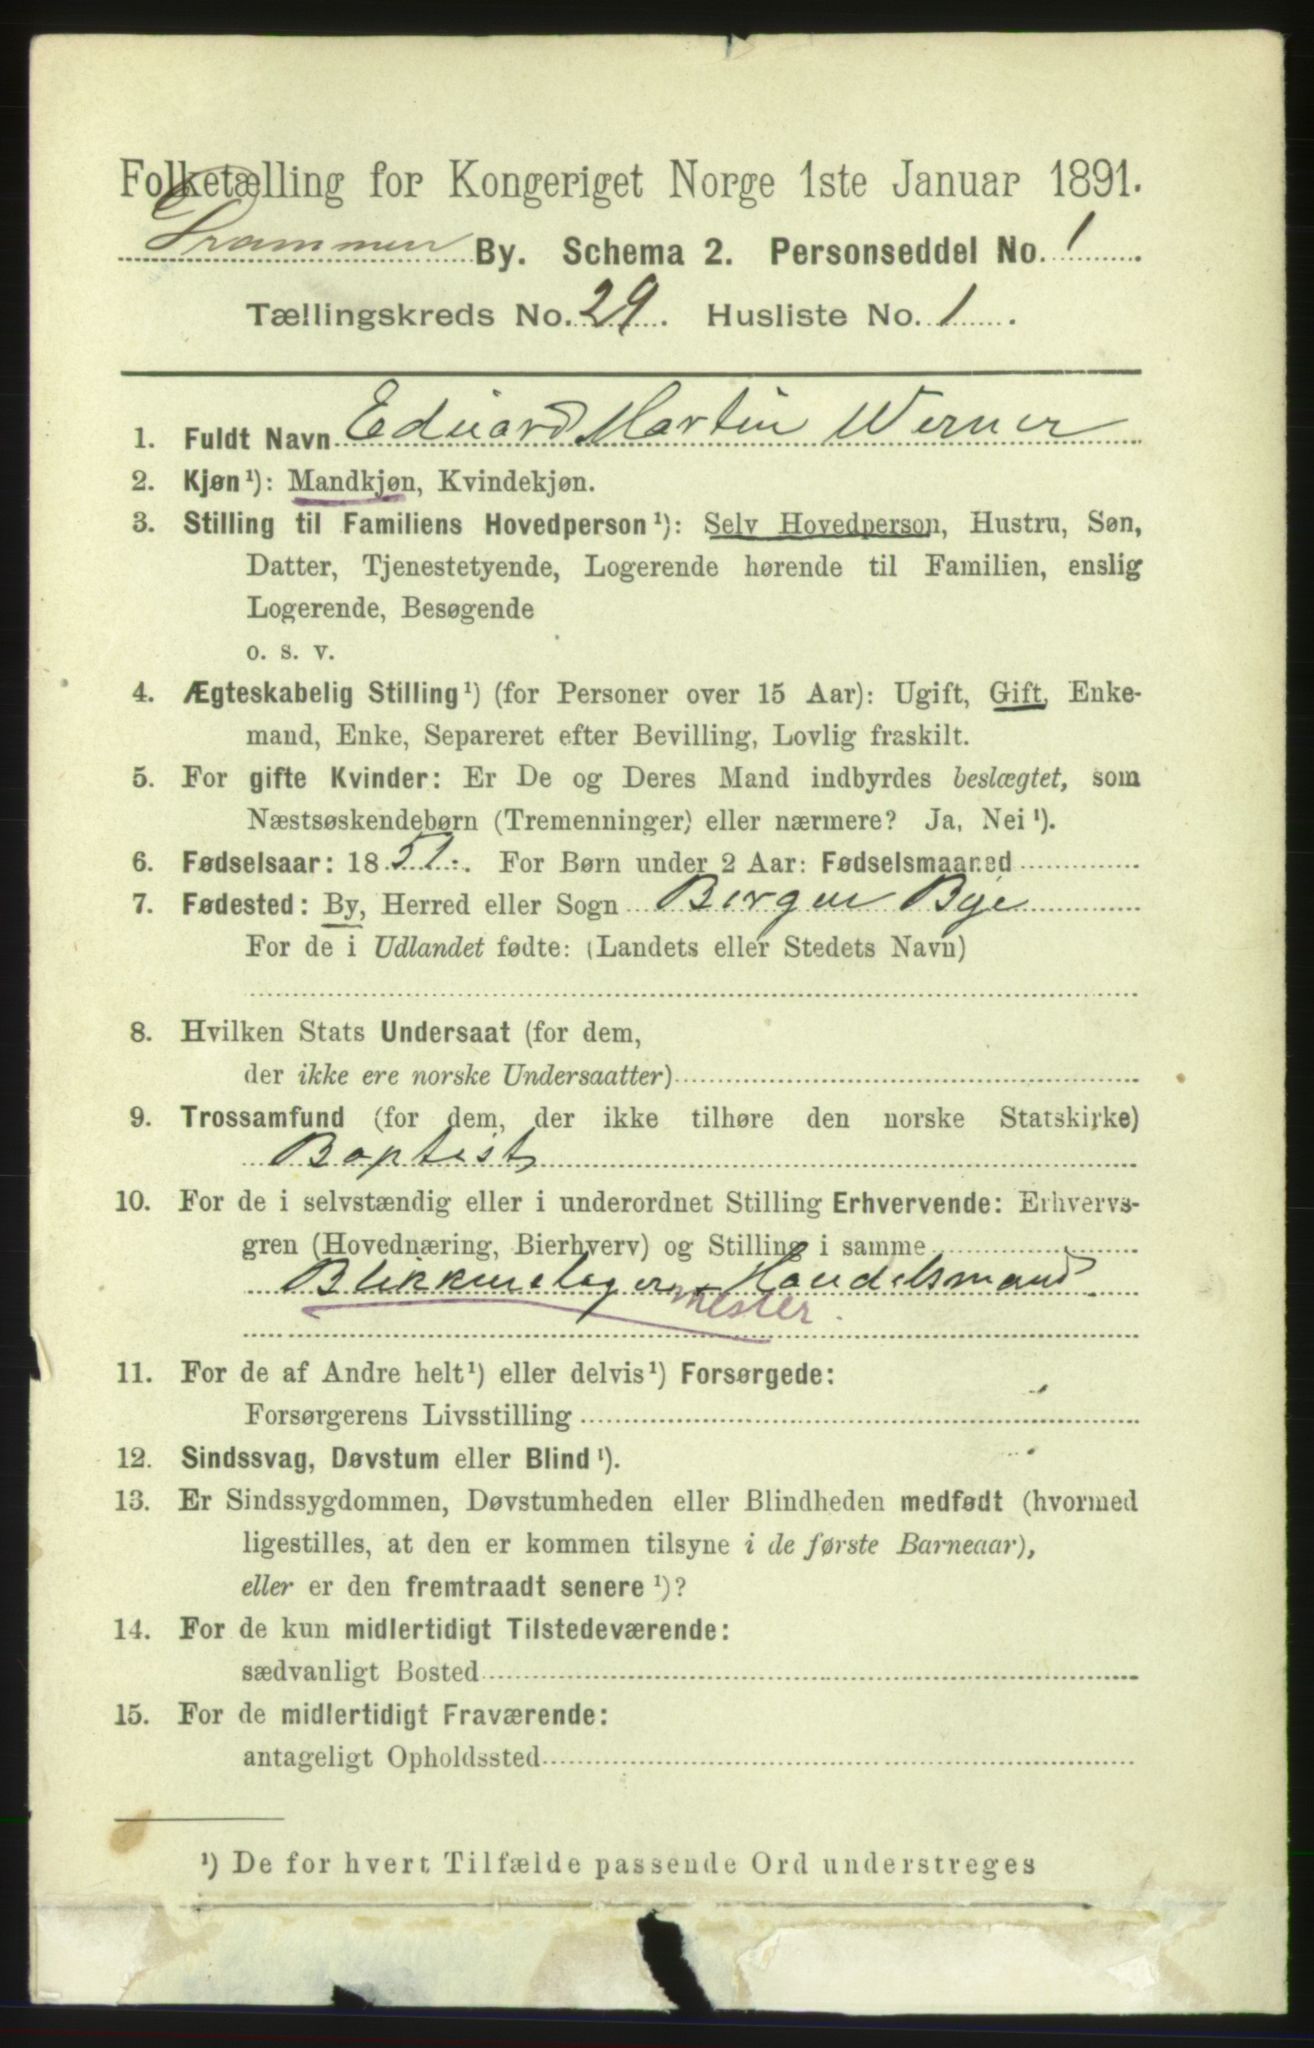 Folketælling for Kongeriget Norge 1ste Januar 1891.
Drammen By. Schema 2. Personseddel No. 1
Tællingskreds No. 29. Husliste No. 1.
1. Fuldt Navn Eduard Martin Werner
2. Kjøn¹): Mandkjøn, Kvindekjøn.
3. Stilling til Familiens Hovedperson¹): Selv Hovedperson, Hustru, Søn,
Datter, Tjenestetyende, Logerende hørende til Familien, enslig
Logerende, Besøgende
o. s. v.
4. Ægteskabelig Stilling¹) (for Personer over 15 Aar): Ugift, Gift, Enke-
mand, Enke, Separeret efter Bevilling, Lovlig fraskilt.
5. For gifte Kvinder: Er De og Deres Mand indbyrdes beslægtet, som
Næstsøskendebørn (Tremenninger) eller nærmere? Ja, Nei¹).
6. Fødselsaar: 1851. For Børn under 2 Aar: Fødselsmaaned
7. Fødested: By, Herred eller Sogn Bergen Bye
For de i Udlandet fødte: (Landets eller Stedets Navn)
8. Hvilken Stats Undersaat (for dem,
der ikke ere norske Undersaatter)
9. Trossamfund (for dem, der ikke tilhøre den norske Statskirke)
Baptist
10. For de i selvstændig eller i underordnet Stilling Erhvervende: Erhvervs-
gren (Hovednæring, Bierhverv) og Stilling i samme
Blikkenslager Handelsmand
mester.
11. For de af Andre helt¹) eller delvis¹) Forsørgede:
Forsørgerens Livsstilling
12. Sindssvag, Døvstum eller Blind¹).
13. Er Sindssygdommen, Døvstumheden eller Blindheden medfødt (hvormed
ligestilles, at den er kommen tilsyne i de første Barneaar),
eller er den fremtraadt senere¹)?
14. For de kun midlertidigt Tilstedeværende:
sædvanligt Bosted
15. For de midlertidigt Fraværende:
antageligt Opholdssted
¹) De for hvert Tilfælde passende Ord understreges